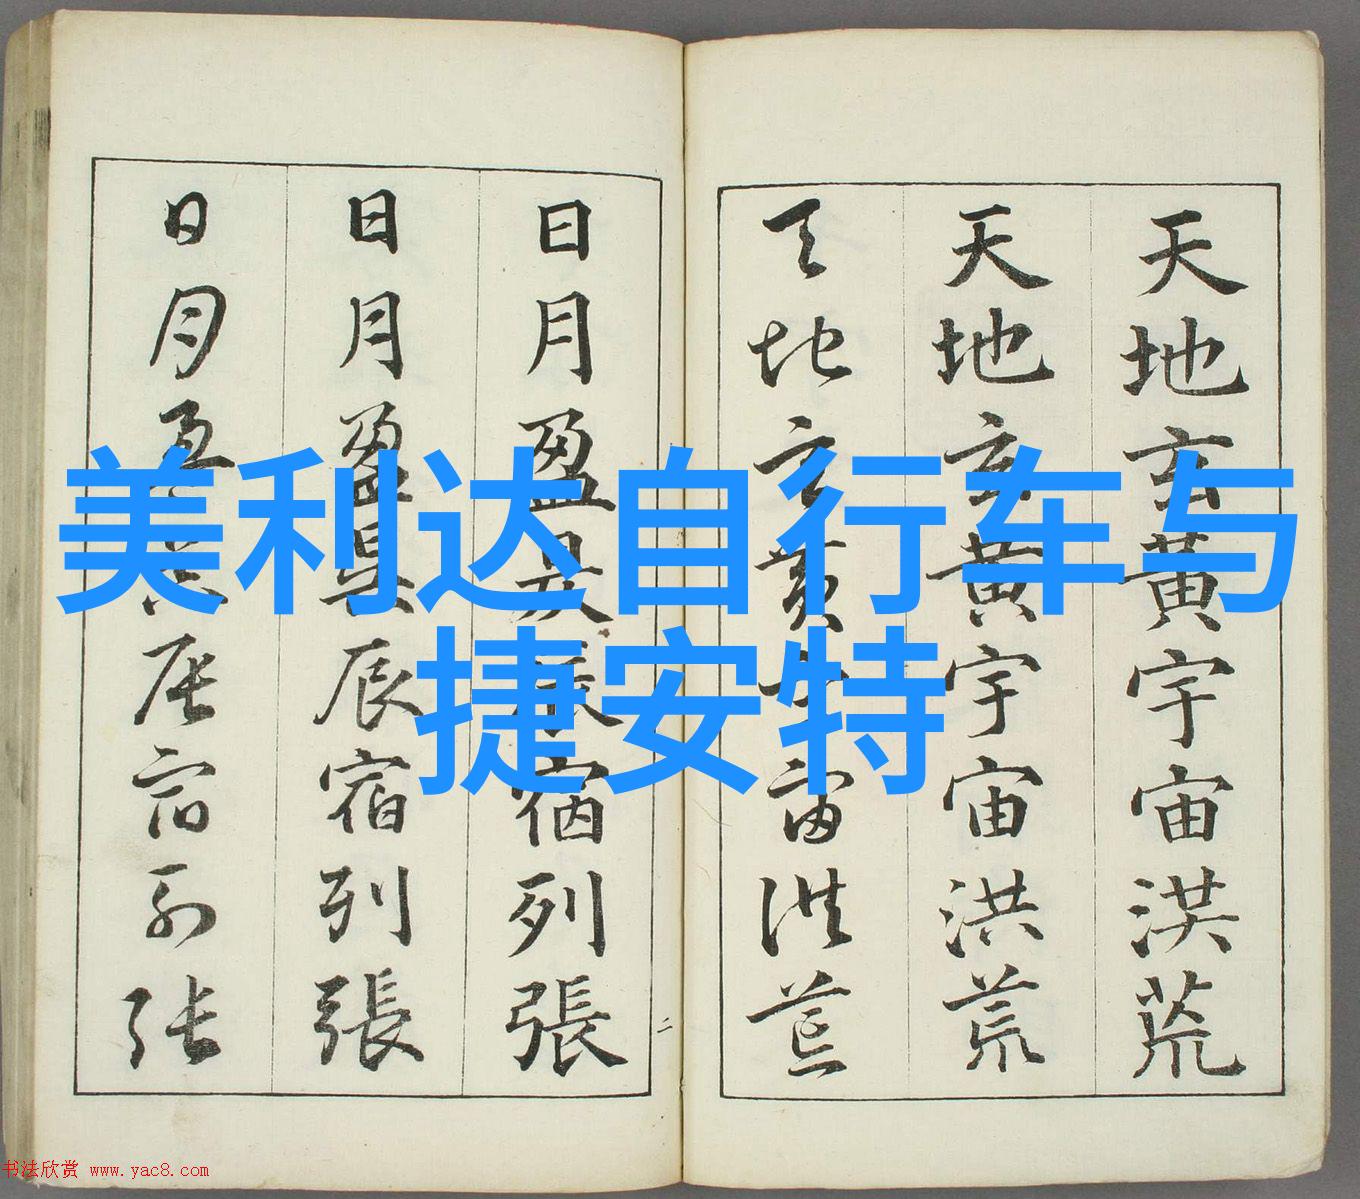 美利达自行车与
捷安特
天地玄黄宇宙洪荒
天地玄黄宇宙洪荒
天地玄黄宇宙洪荒
二
日月盈昃辰宿列張
日月盈昃辰宿列張
日月盈昃辰宿列张
书法欣赏 www.yac8.com